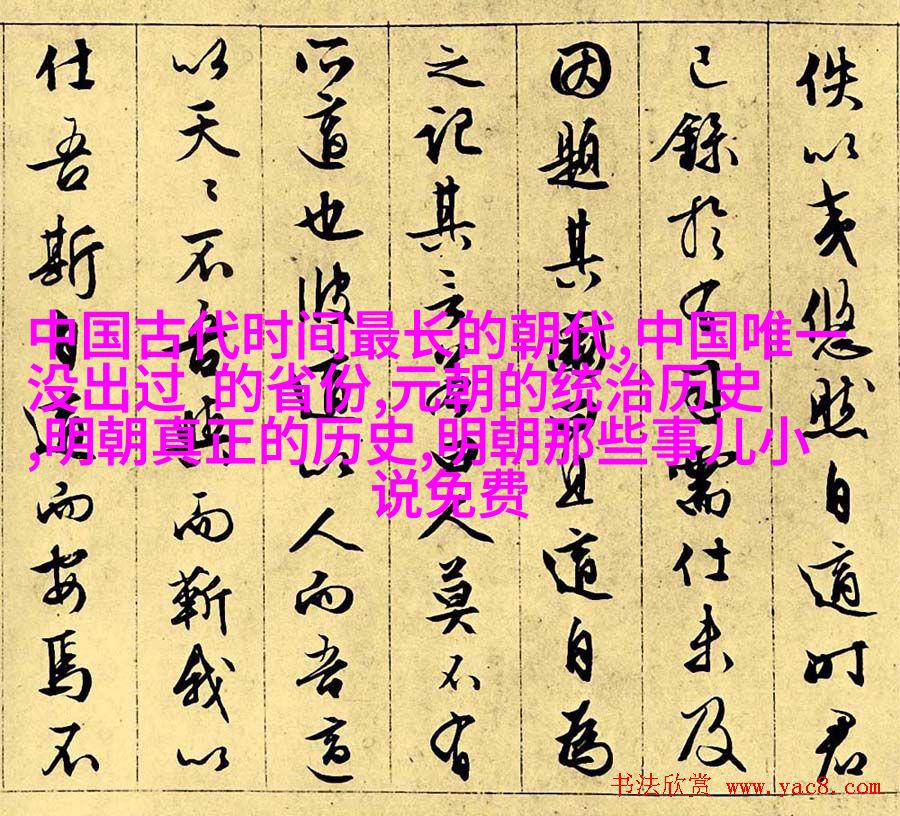 佚以夷悠然自適时君
已録於需仕未及
因題其且適自為
之記其言人莫不有
所適也彼適以人而吾適
以天〻不吾而蘄我以
仕吾斯自適而安焉不
中国古代时间最长的朝代,中国唯一
没出过 的省份,元朝的统治历史
,明朝真正的历史,明朝那些事儿小
说免费
书法欣赏 www.yac8.com